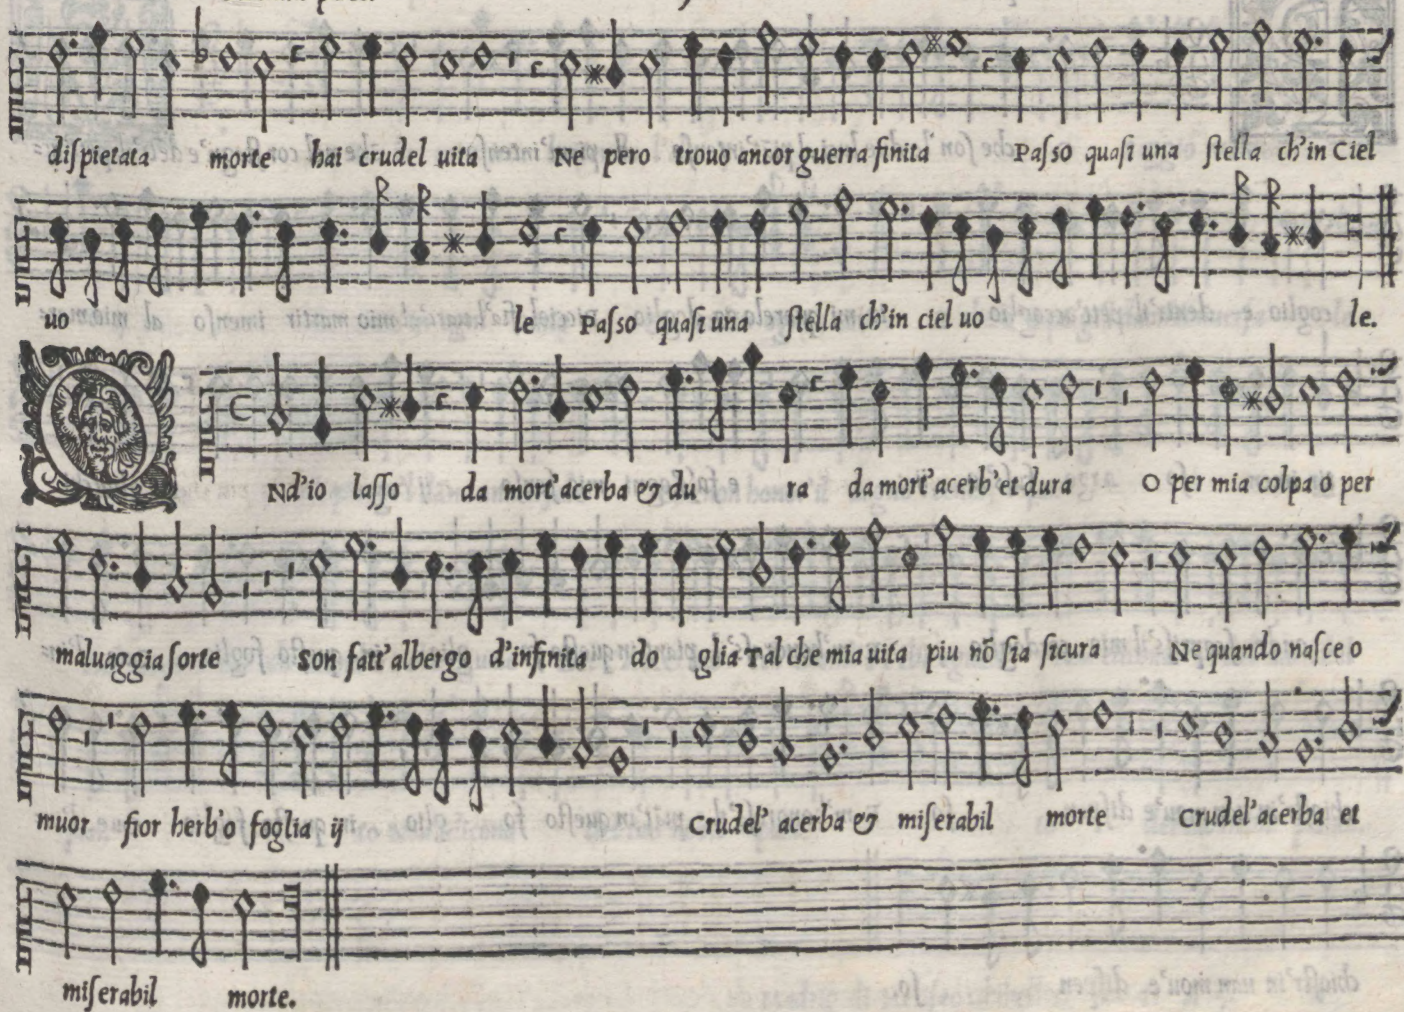 diſpietata morte hai crudel uita Ne pero trouo ancor guerra finita Paſso quaſi una ſtella ch'in Ciel
uo le Paſso quaſi una ſtella ch'in ciel uo le.
O Nd'io laſſo da mort'acerba & du ra da mort'acerb'et dura O per mia colpa o per
maluaggia ſorte Son fatt'albergo d'infinita do glia Tal che mia uita piu nõ ſia ſicura Ne quando naſce o
muor fior herb'o foglia ij Crudel' acerba & miſerabil morte Crudel'acerba et
miſerabil morte.